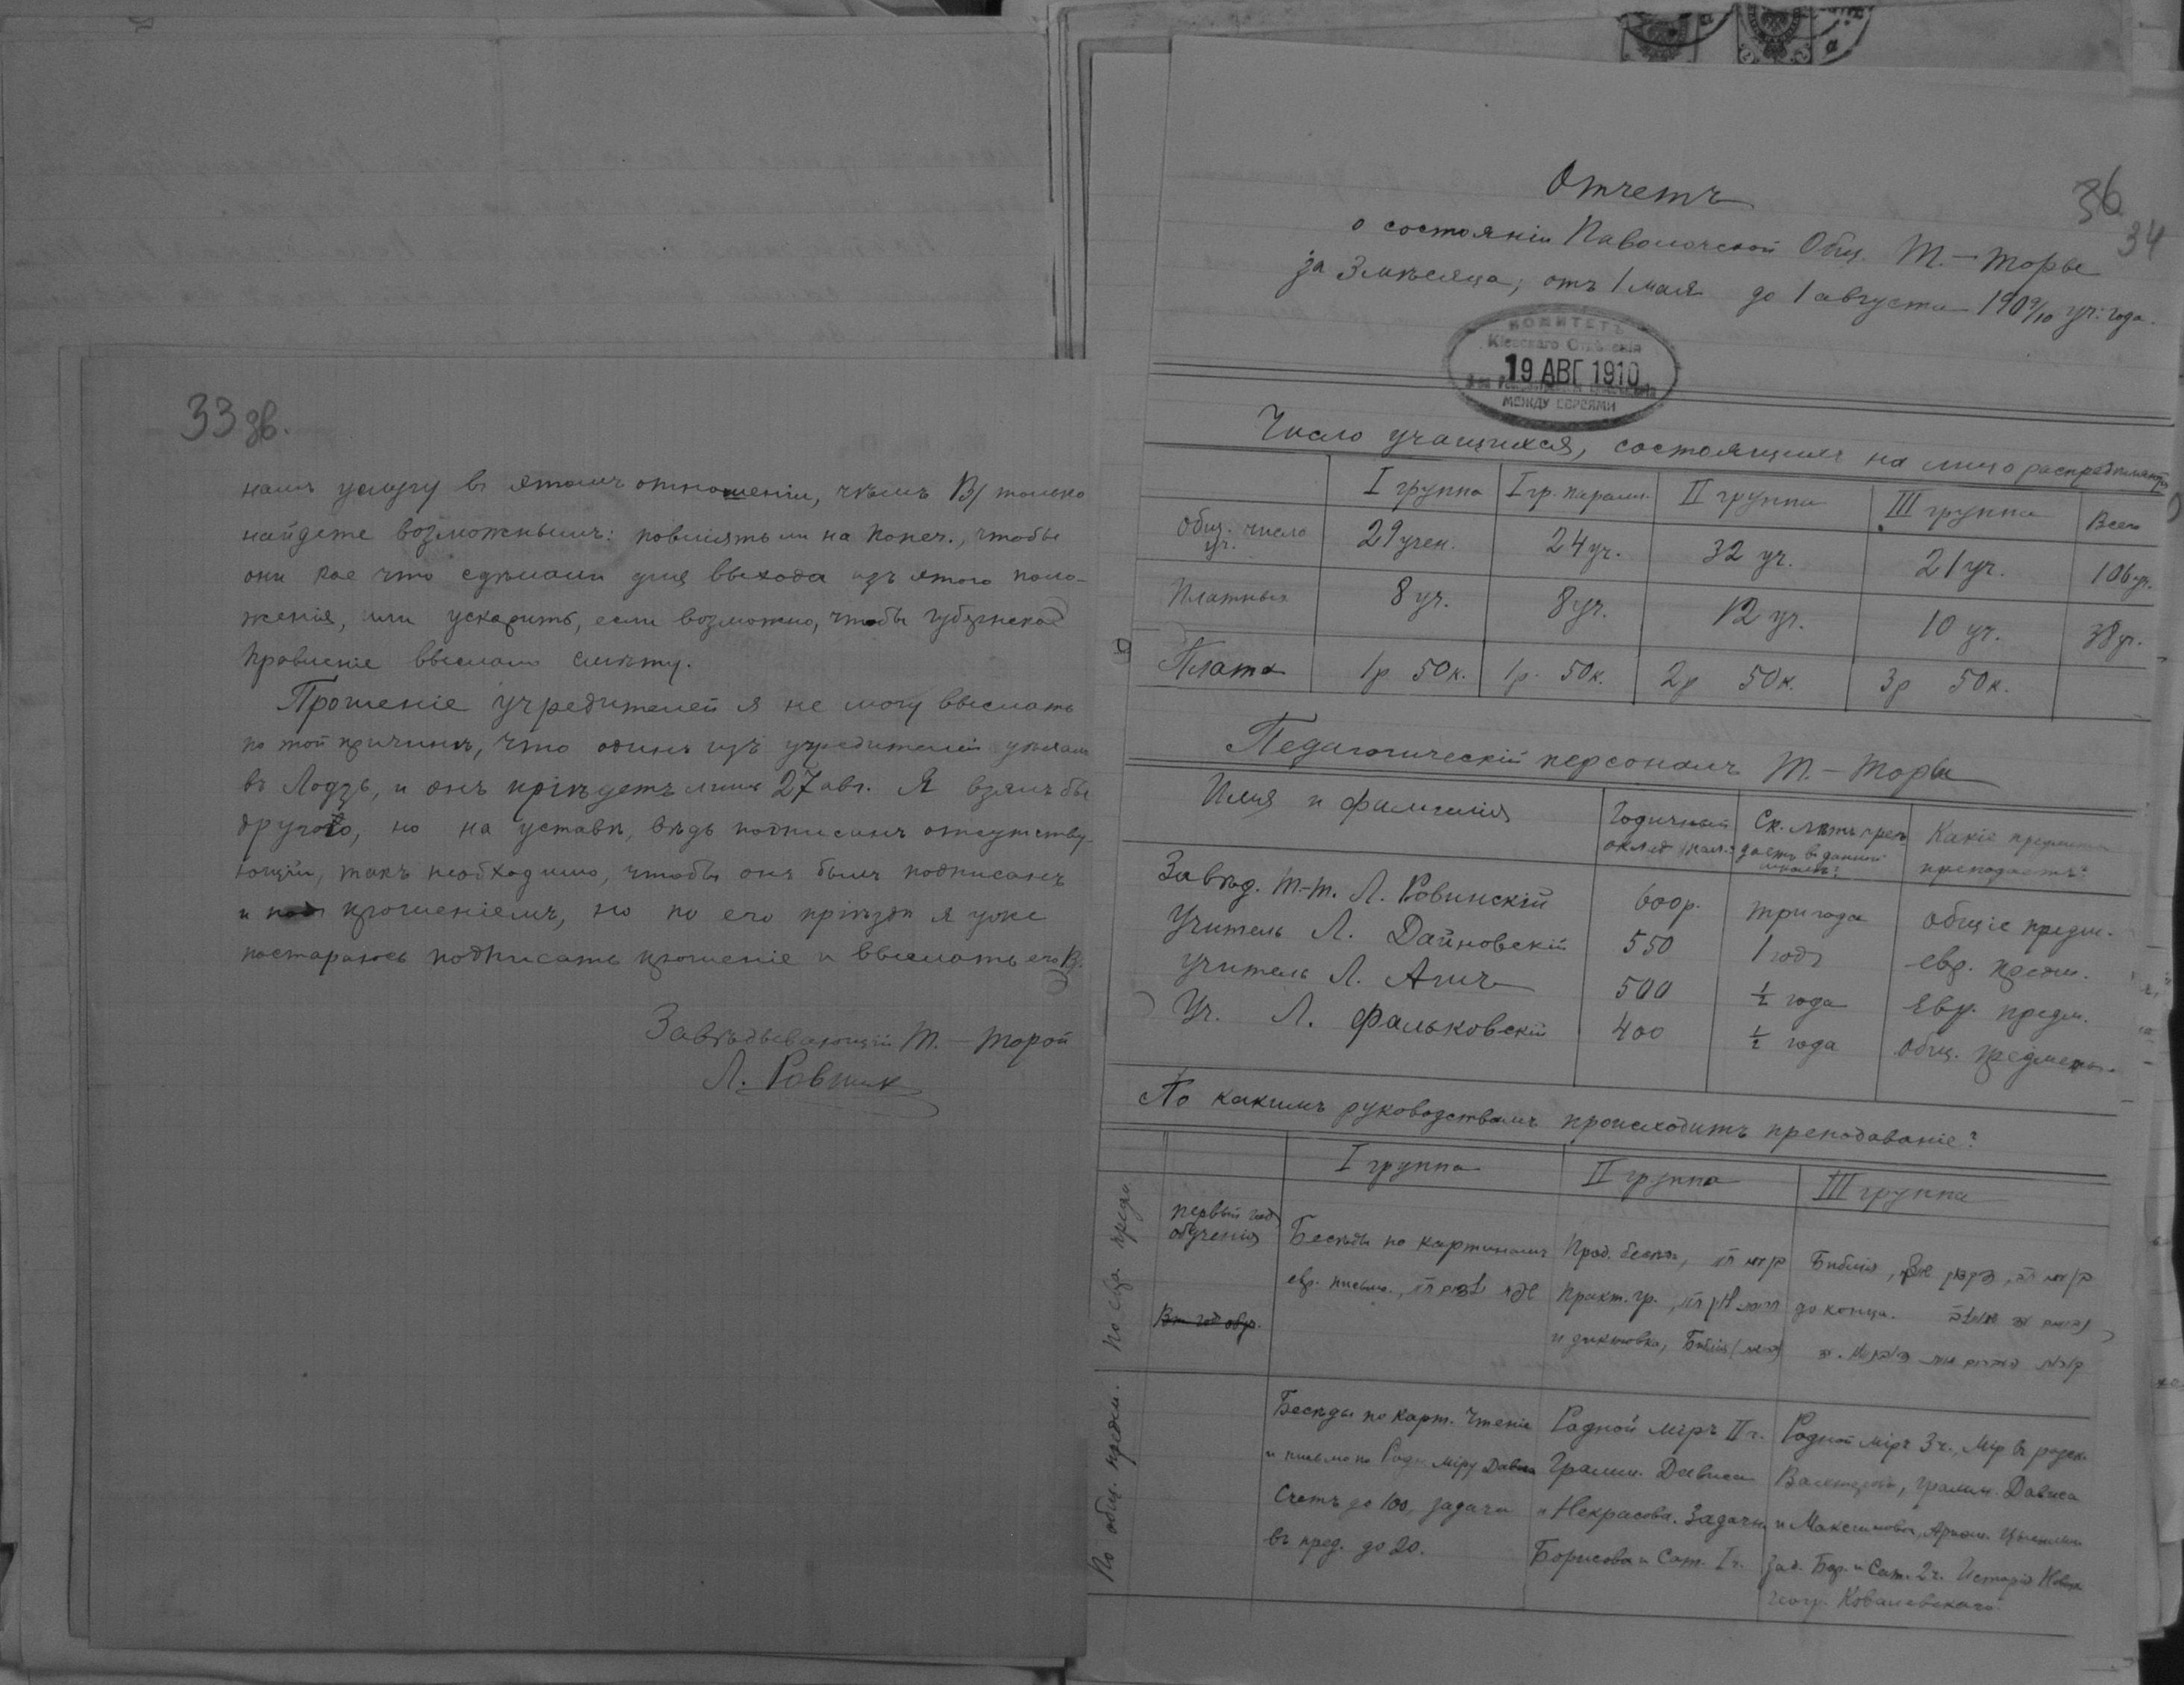 33 зв.
намъ услугу въ этомъ отношеніи, чѣмъ Вы только
найдете возможнымъ: повліять ли на попеч., чтобы
они кое что сдѣлали для выхода изъ этого поло-
женія, или ускорить, если возможно, чтобы губернское
Правленіе выслало смѣту.
Прошеніе учредителей я не могу выслать
по той причинѣ, что одинъ изъ учредителей уѣхалъ
въ Лодзь, и онъ пріѣдетъ лишь 27 авг. Я взялъ бы
другого, но на уставѣ, вѣдь подписанъ отсутству-
ющій, такъ необходимо, чтобы онъ былъ подписанъ
и подъ прошеніемъ, но по его пріѣздѣ я уже
постараюсь подписать прошеніе и выслать его В.
Завѣдывающій Т.-Торой
Л. Ровинск
36
34
Отчетъ
о состояніи Паволочской Общ. Т.-Торы
за 3 мѣсяца, отъ 1 мая до 1 августа 1909/10 уч. года.
КОМИТЕТЪ
Кіевскаго Отдѣленія
19 АВГ 1910
МЕЖДУ ЕВРЕЯМИ
Число учащихся, состоящихъ на лицо распредѣляется
I группа I гр. парал. II группа III группа Всего
Общ. число уч. 29 учен. 24 уч. 32 уч. 21 уч. 106 уч.
Платныхъ 8 уч. 8 уч. 12 уч. 10 уч. 38 уч.
Плата 1р 50к. 1р. 50к. 2р 50к. 3р 50к.
Педагогическій персоналъ Т.-Торы
Имя и фамилія Годичный оклад жал. Ск. лѣтъ преподаетъ въ данной школѣ? Какіе предметы преподаетъ?
Завѣд. Т.-Т. Л. Ровинскій 600р. три года общіе предм.
Учитель Л. Дайновскій 550 1 годъ евр. предм.
Учитель Л. 500 ½ года евр. предм.
Уч. Л. Фальковскій 400 ½ года общ. предметы.
По какимъ руководствамъ происходитъ преподаваніе?
I группа II группа III группа
По евр. предм.
первый год обученія
Вт. год обуч.
Бесѣды по картинамъ
евр. письмо.,
Прод. бесѣд,
Практ. гр.,
и диктовка, Библія
Библія,
до конца.
По общ. предм.
Бесѣды по карт. Чтеніе
и письмо по Родн. міру Дависа
Счетъ до 100, задачи
въ пред. до 20.
Родной міръ II ч.
Грамм. Дависа
и Некрасова. Задачн.
Борисова и Сат. I ч.
Родной міръ 3 ч., Мір в разск.
грамм. Дависа
и Максимова, Арифм.
зад. Бор. и Сат. 2 ч. Исторія
геогр. Ковалевскаго